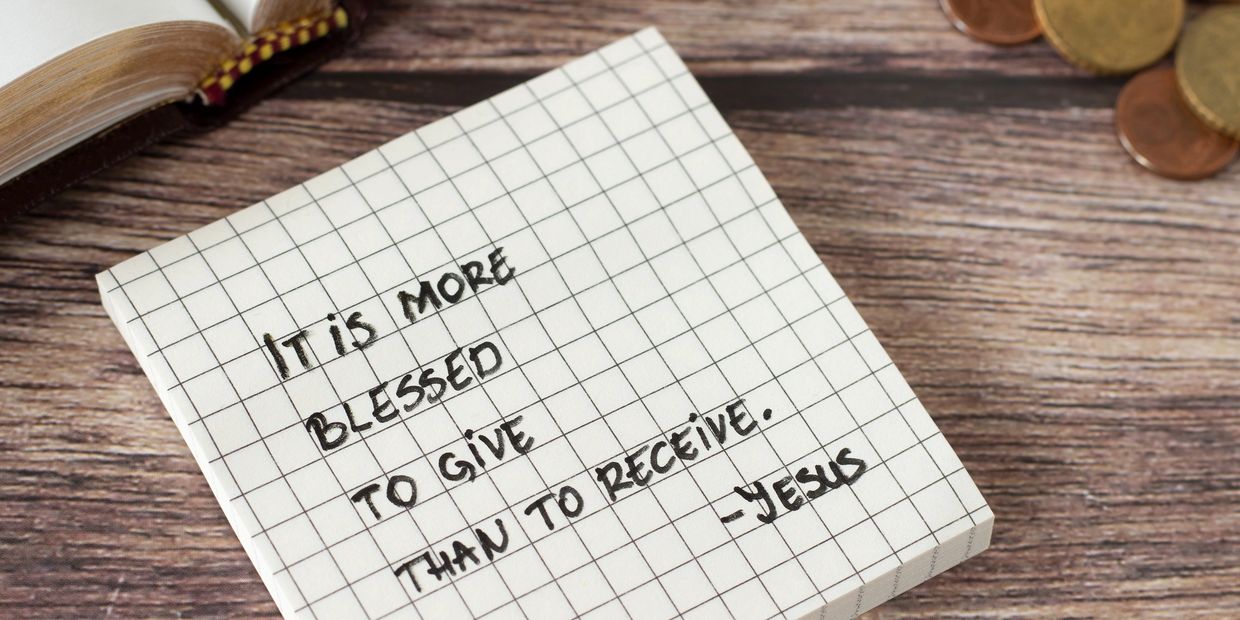 IT iS MORE
BLESSED
TO GiVE
THAN TO RECEiVE.
-JESUS